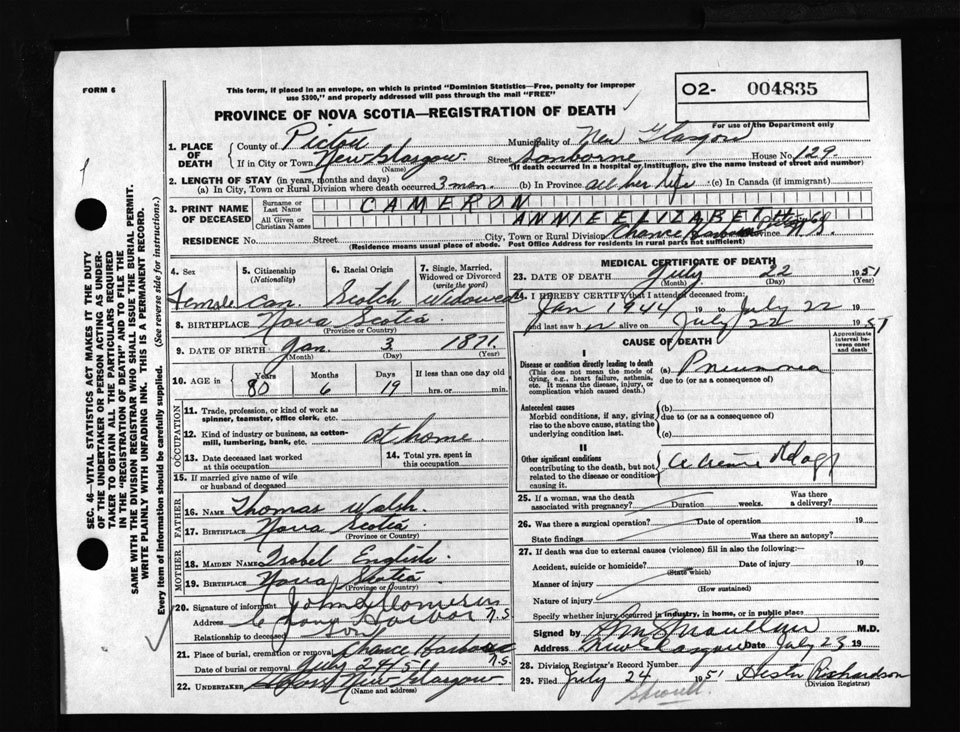 FORM 6
This form, if placed in an envelope, on which is printed "Dominion Statistics—Free, penalty for improper
use $300," and properly addressed will pass through the mail "FREE"
O2- 004835
For use of the Department only
PROVINCE OF NOVA SCOTIA—REGISTRATION OF DEATH
1. PLACE OF DEATH
County of Pictou Municipality of New Glasgow
If in City or Town New Glasgow Street House No. 129
(Name) (If death occurred in hospital or institution, give the name instead of street and number)
2. LENGTH OF STAY (in years, months and days)
(a) In City, Town or Rural Division where death occurred 3 mon. (b) In Province all her life (c) In Canada (if immigrant)
3. PRINT NAME OF DECEASED
Surname or Last Name CAMERON
All Given or Christian Names ANNIE ELIZABETH
RESIDENCE No. Street City, Town or Rural Division Chance Harbour Province N.S.
(Residence means usual place of abode. Post Office Address for residents in rural parts not sufficient)
4. Sex Female
5. Citizenship (Nationality) Can.
6. Racial Origin Scotch
7. Single, Married, Widowed or Divorced (write the word) Widowed
8. BIRTHPLACE Nova Scotia
(Province or Country)
9. DATE OF BIRTH Jan. 3 1871
(Month) (Day) (Year)
10. AGE in Years Months Days If less than one day old
80 6 19 hrs. or min.
OCCUPATION
11. Trade, profession, or kind of work as spinner, teamster, office clerk, etc.
12. Kind of industry or business, as cotton-mill, lumbering, bank, etc. at home
13. Date deceased last worked at this occupation
14. Total yrs. spent in this occupation
15. If married give name of wife or husband of deceased
FATHER
16. NAME Thomas Walsh
17. BIRTHPLACE Nova Scotia
(Province or Country)
MOTHER
18. MAIDEN NAME Isobel English
19. BIRTHPLACE Nova Scotia
(Province or Country)
20. Signature of informant John Cameron
Address Chance Harbour N.S.
Relationship to deceased Son
21. Place of burial, cremation or removal Chance Harbour N.S.
Date of burial or removal July 24/51
22. UNDERTAKER New Glasgow
(Name and address)
MEDICAL CERTIFICATE OF DEATH
23. DATE OF DEATH July 22 1951
(Month) (Day) (Year)
24. I HEREBY CERTIFY that I attended deceased from:
Jan 1944 19 to July 22
and last saw h er alive on July 22 1951
CAUSE OF DEATH
Approximate interval between onset and death
I
Disease or condition directly leading to death
(This does not mean the mode of dying, e.g., heart failure, asthenia, etc. It means the disease, injury, or complication which caused death.)
(a) Pneumonia
due to (or as a consequence of)
Antecedent causes
Morbid conditions, if any, giving rise to the above cause, stating the underlying condition last.
(b)
due to (or as a consequence of)
(c)
II
Other significant conditions
contributing to the death, but not related to the disease or condition causing it.
25. If a woman, was the death associated with pregnancy? Duration weeks. Was there a delivery?
26. Was there a surgical operation? Date of operation 19
State findings Was there an autopsy?
27. If death was due to external causes (violence) fill in also the following:—
Accident, suicide or homicide? Date of injury 19
(State which)
Manner of injury
(How sustained)
Nature of injury
Specify whether injury occurred in industry, in home, or in public place
Signed by M.D.
Address New Glasgow Date July 23 19
28. Division Registrar's Record Number
29. Filed July 24 1951 Hester Richardson
(Division Registrar)
SEC. 46—VITAL STATISTICS ACT MAKES IT THE DUTY
OF THE UNDERTAKER OR PERSON ACTING AS UNDER-
TAKER TO OBTAIN ALL THE PARTICULARS REQUIRED
IN THE "REGISTRATION OF DEATH" AND TO FILE THE
SAME WITH THE DIVISION REGISTRAR WHO SHALL ISSUE THE BURIAL PERMIT.
WRITE PLAINLY WITH UNFADING INK. THIS IS A PERMANENT RECORD.
Every item of information should be carefully supplied. (See reverse side for instructions.)